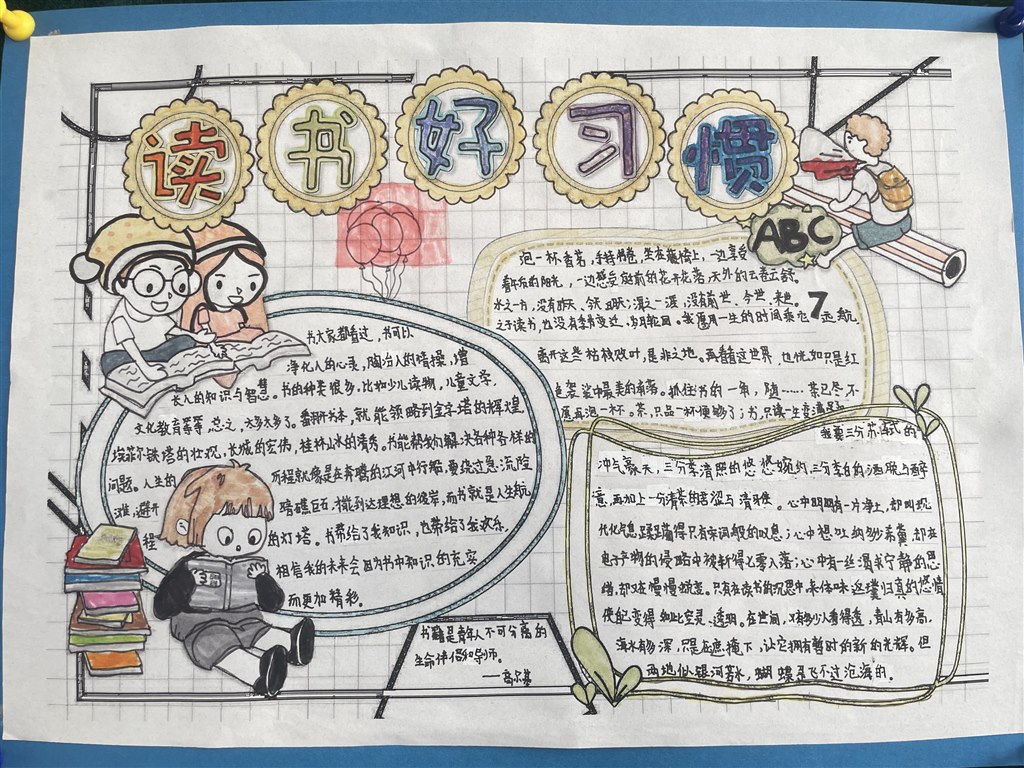 读书好习惯
ABC
书大家都看过，书可以
净化人的心灵，陶冶人的情操，增
长人的知识与智慧。书的种类很多，比如少儿读物，儿童文学，
文化教育等等，总之，太多太多了。翻开书本，就能领略到金字塔的辉煌，
埃菲尔铁塔的壮观，长城的宏伟，桂林山水的清秀。书能帮我们解决各种各样的
问题。人生的历程就像是在奔腾的江河中行船，要绕过急流险
滩，避开暗礁巨石，才能到达理想的彼岸，而书就是人生航
程的灯塔。书带给了我知识，也带给了我欢乐，
相信我的未来会因为书中知识的充实
而更加精彩。
泡一杯香茗，手持书卷，坐在藤椅上，一边享受
着午后的阳光，一边感受庭前的花开花落，天外的云卷云舒。
水之一方，没有昨天、今天、明天；漠之一涯，没有前世、今世、来世。
之于读书，也没有季节变迁，岁月轮回。我愿用一生的时间乘它7远航，
离开这些枯枝败叶，是非之地。再看看这世界，也恍如只是红
抓住书的一角，随……茶已尽，不
愿再泡一杯。茶，只品一杯便够了；书，只读一生
我要三分苏轼式的
冲天豪天，三分李清照的悠悠婉约，三分李白的洒脱与醉
意，再加上一分清茶的苦涩与清香。心中明明有一片净土，却叫现
代化气息蹂躏得只有宋词般的叹息；心中想放纳些许希冀，却在
电子产物的侵略中被打得七零八落；心中有一丝渴求宁静的思
绪，却在慢慢倾歪。只有在读书的沉思中，来体味返璞归真的悠情
使自己变得如此空灵、透明。在世间，又有多少人看得透，青山有多高，
海水有多深，只是在遮掩下，让它拥有暂时的新的光辉。但
两地似银河若水，蝴蝶是飞不过沧海的。
书籍是青年人不可分离的
生命伴侣和导师。
——高尔基